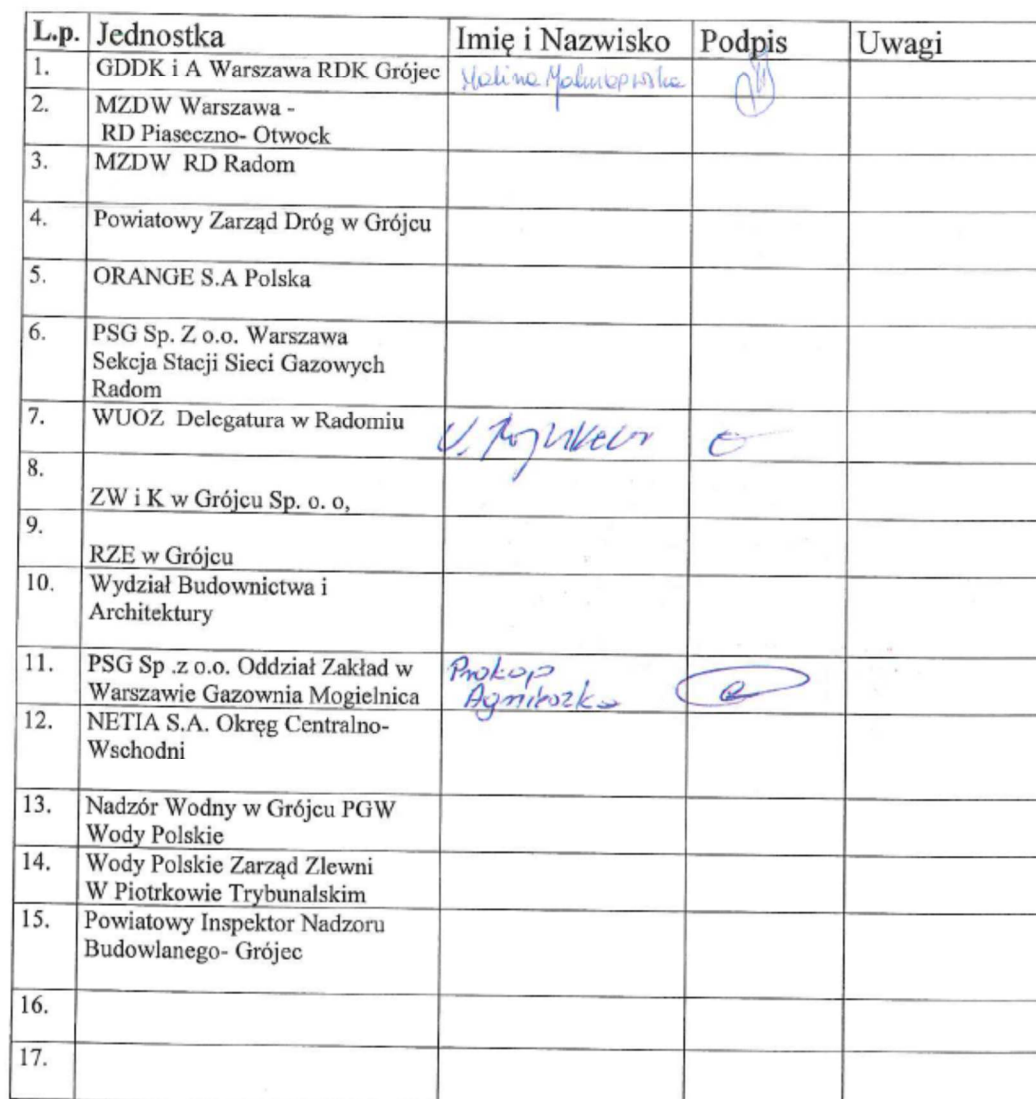 L.p. Jednostka Imię i Nazwisko Podpis Uwagi
1. GDDK i A Warszawa RDK Grójec Malina
2. MZDW Warszawa -
RD Piaseczno- Otwock
3. MZDW RD Radom
4. Powiatowy Zarząd Dróg w Grójcu
5. ORANGE S.A Polska
6. PSG Sp. Z o.o. Warszawa
Sekcja Stacji Sieci Gazowych
Radom
7. WUOZ Delegatura w Radomiu
8.
ZW i K w Grójcu Sp. o. o,
9.
RZE w Grójcu
10. Wydział Budownictwa i
Architektury
11. PSG Sp .z o.o. Oddział Zakład w Prokop
Warszawie Gazownia Mogielnica Agnieszka
12. NETIA S.A. Okręg Centralno-
Wschodni
13. Nadzór Wodny w Grójcu PGW
Wody Polskie
14. Wody Polskie Zarząd Zlewni
W Piotrkowie Trybunalskim
15. Powiatowy Inspektor Nadzoru
Budowlanego- Grójec
16.
17.